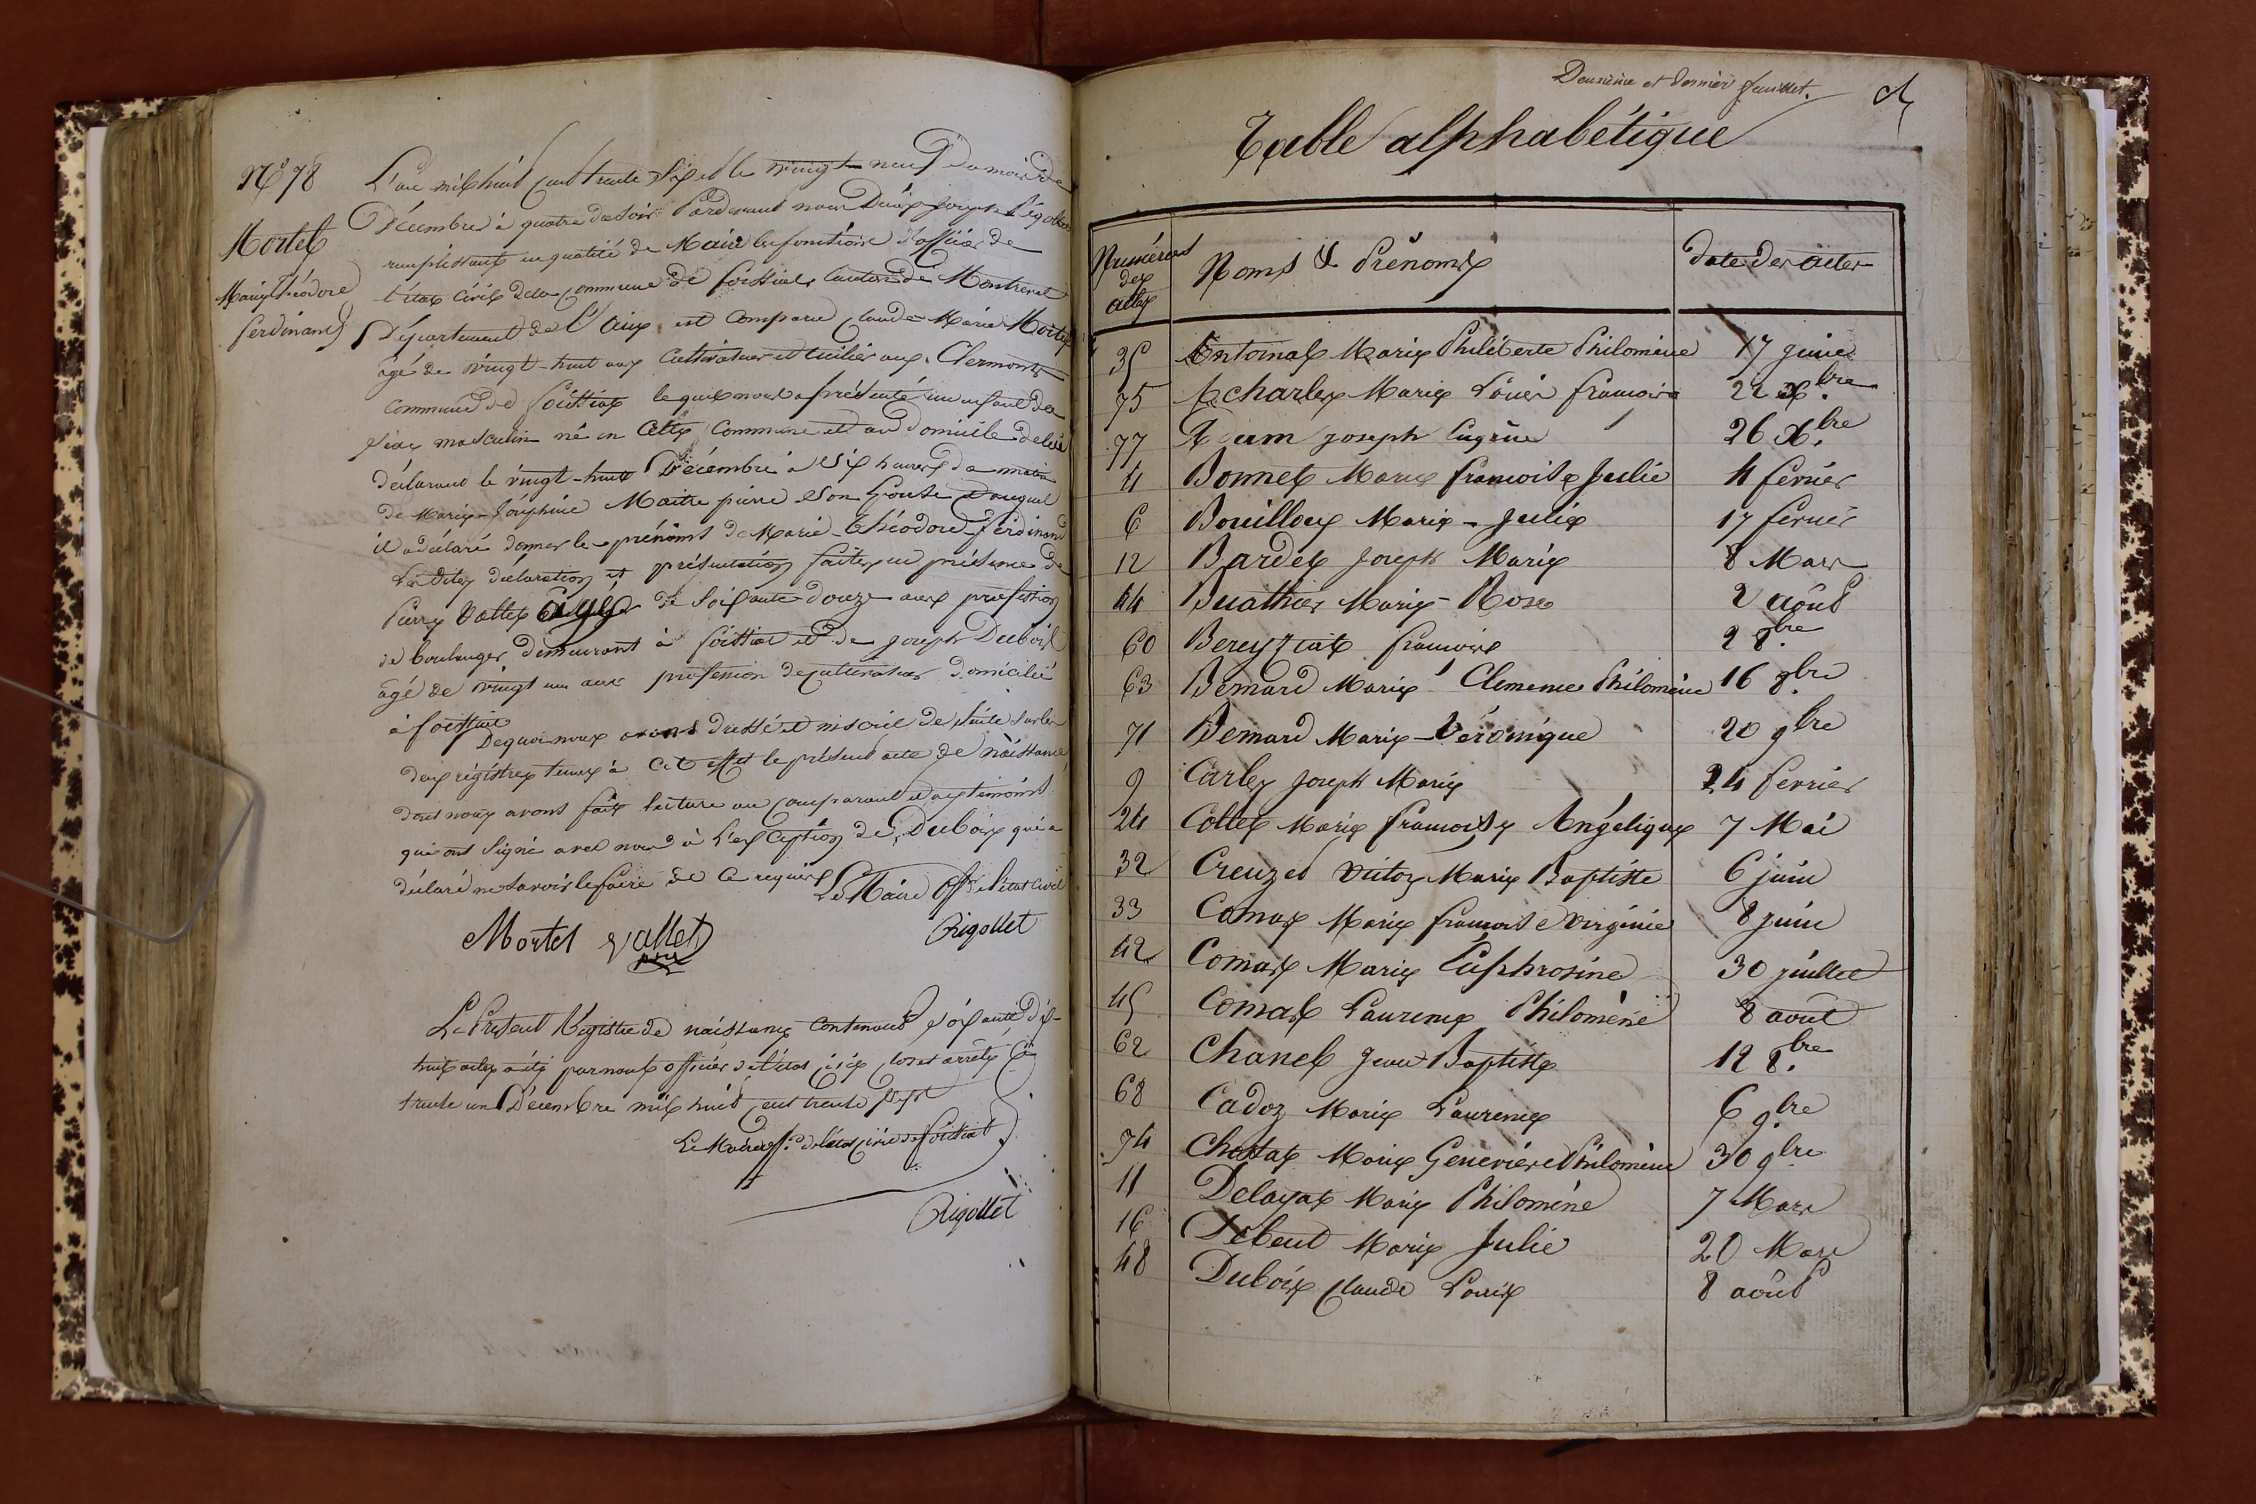 N° 78
Mortel
Marie Théodore
ferdinand
L'an mil huit cent trente sept et le vingt neuf du mois de
Décembre à quatre du soir Pardevant nous Joseph Rigollet
remplissant en qualité de Maire les fonctions d'officier de
l'état civil de la commune de foissiat canton de Montrevel
Département de l'Ain est comparu Claude Marie Mortel
âgé de vingt-huit ans cultivateur et tuilier aux Clermonts
commune de foissiat lequel nous a présenté un enfant de
sexe masculin né en cette commune et au domicile de lui
déclarant le vingt-huit Décembre à six heures du matin
de Marie-Joséphine Maitrepierre son épouse et auquel
il a déclaré donner les prénoms de Marie-Théodore-ferdinand
les dites déclaration et présentation faites en présence de
Pierre Vallet âgé de soixante douze ans profession
de boulanger demeurant à foissiat et de joseph Dubois
âgé de vingt un ans profession de cultivateur domicilié
à foissiat
De quoi nous avons dressé et inscrit de suite sur les
deux régistres tenus à cet effet le présent acte de naissance
dont nous avons fait lecture au comparant et aux témoins
qui ont signé avec nous à l'exception de Dubois qui a
déclaré ne savoir le faire de ce requis
Le Maire Off. de l'état civil
Mortel Vallet Rigollet
Le Présent Registre de naissance contenant soixante dix-
huit actes a été par nous officier de l'état civil clos et arrêté ce
trente un Décembre mil huit cent trente sept
Le Maire off. de l'état civil de foissiat
Rigollet
Deuxième et dernier feuillet.
Table alphabétique
Numéros des actes Noms & Prénoms Date des actes
35 Antoinat Marie Philiberte Philomène 17 juin
75 Acharles Marie Louis françois 22 Xbre
77 Adam joseph Eugène 26 Xbre
4 Bonnet Marie françoise Julie 4 février
6 Bouilloux Marie-Julie 17 février
12 Bardet Joseph Marie 8 Mars
44 Buathier Marie-Rose 2 août
60 Bereyziat françois 2 8bre
63 Bernard Marie Clémence Philomène 16 8bre
71 Bernard Marie-Véronique 20 9bre
9 Carley Joseph Marie 24 février
24 Collet Marie françoise Angélique 7 Mai
32 Creuzet Victor Marie Baptiste 6 juin
33 Comas Marie françoise Virginie 8 juin
42 Comas Marie Euphrosine 30 juillet
45 Comas Laurence Philomène 8 août
62 Chanel Jean-Baptiste 12 8bre
68 Cadoz Marie Laurence 6 9bre
74 Chossat Marie Geneviève Philomène 30 9bre
11 Delayat Marie Philomène 7 Mars
16 Debeut Marie Julie 20 Mars
48 Dubois Claude Louis 8 août